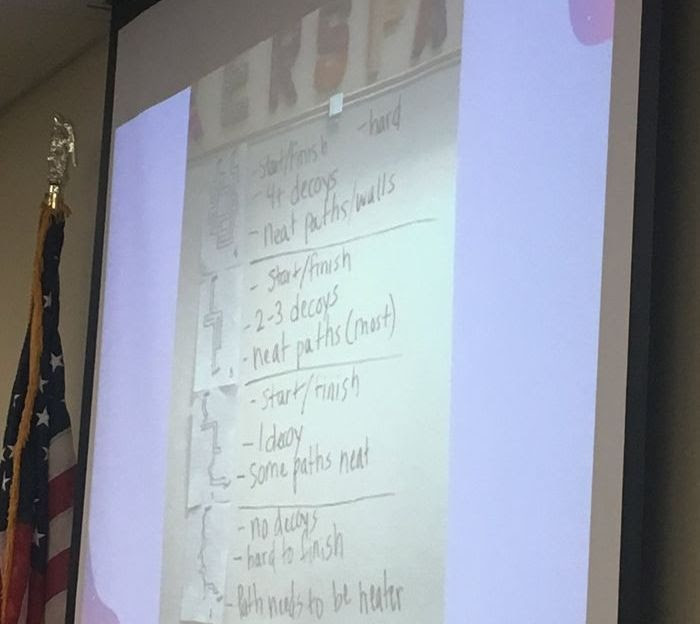 ERSPA
- start/finish - hard
- 4+ decoys
- neat paths/walls
- start/finish
- 2-3 decoys
- neat paths (most)
- start/finish
- 1 decoy
- some paths neat
- no decoys
- hard to finish
- Path needs to be neater